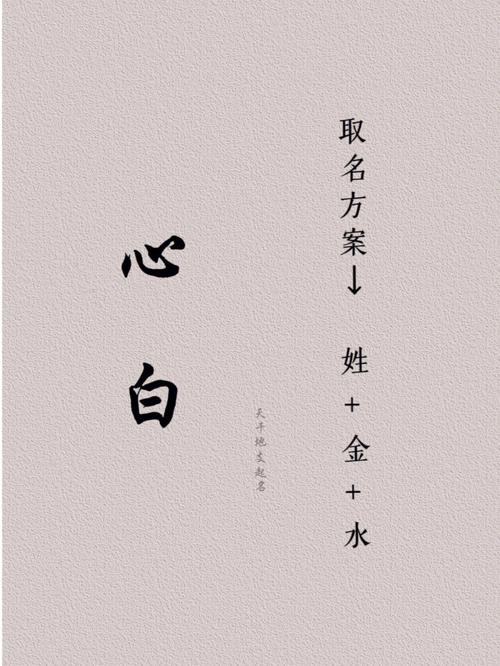 取名方案↓ 姓+金+水
天干地支起名
心白